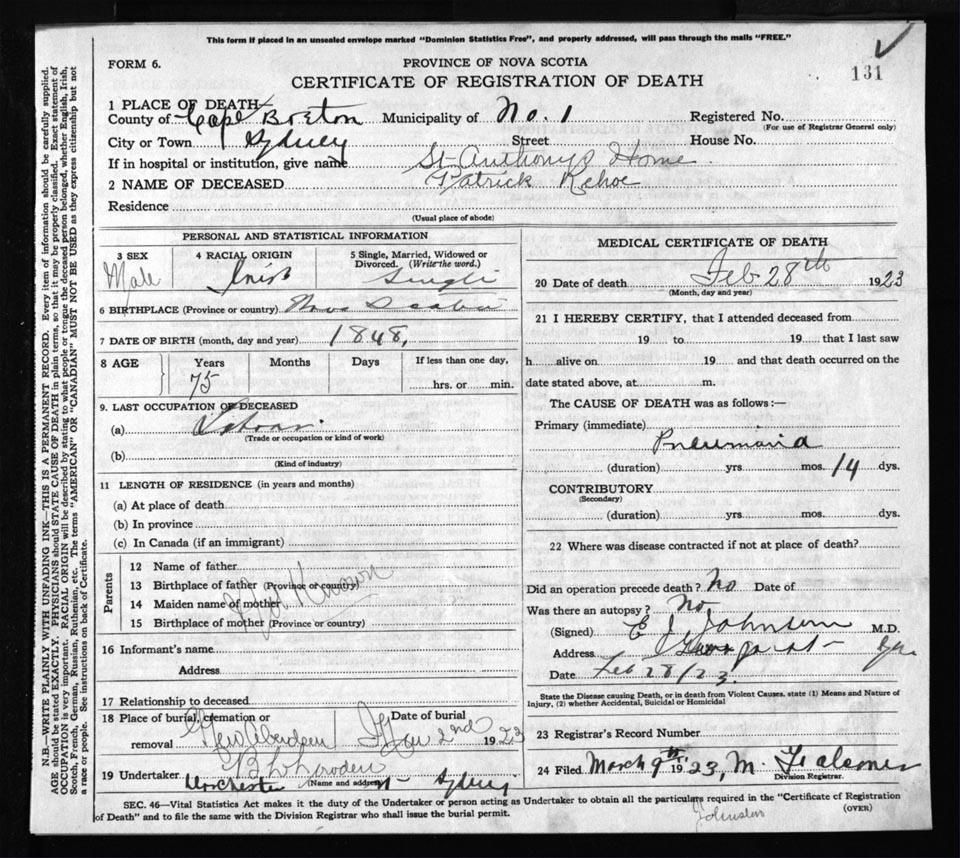 This form if placed in an unsealed envelope marked "Dominion Statistics Free", and properly addressed, will pass through the mails "FREE."
FORM 6.
PROVINCE OF NOVA SCOTIA
131
CERTIFICATE OF REGISTRATION OF DEATH
1 PLACE OF DEATH
County of Cape Breton Municipality of No. 1 Registered No.
(For use of Registrar General only)
City or Town Sydney Street House No.
If in hospital or institution, give name St Anthonys Home
2 NAME OF DECEASED Patrick Kehoe
Residence
(Usual place of abode)
PERSONAL AND STATISTICAL INFORMATION
3 SEX Male
4 RACIAL ORIGIN Irish
5 Single, Married, Widowed or Divorced. (Write the word.) Single
6 BIRTHPLACE (Province or country) Nova Scotia
7 DATE OF BIRTH (month, day and year) 1848,
8 AGE Years Months Days If less than one day,
75 hrs. or min.
9. LAST OCCUPATION OF DECEASED
(a)
(Trade or occupation or kind of work)
(b)
(Kind of industry)
11 LENGTH OF RESIDENCE (in years and months)
(a) At place of death
(b) In province
(c) In Canada (if an immigrant)
Parents
12 Name of father
13 Birthplace of father (Province or country)
14 Maiden name of mother
15 Birthplace of mother (Province or country)
Not Known
16 Informant's name
Address
17 Relationship to deceased
18 Place of burial, cremation or removal New Aberdeen
Date of burial 2nd 1923
19 Undertaker
(Name and address) Sydney
MEDICAL CERTIFICATE OF DEATH
20 Date of death Feb 28th 1923
(Month, day and year)
21 I HEREBY CERTIFY, that I attended deceased from
19 to 19 that I last saw
h alive on 19 and that death occurred on the
date stated above, at m.
The CAUSE OF DEATH was as follows:—
Primary (immediate) Pneumonia
(duration) yrs mos. 14 dys.
CONTRIBUTORY
(Secondary)
(duration) yrs mos. dys.
22 Where was disease contracted if not at place of death?
Did an operation precede death? No Date of
Was there an autopsy? No
(Signed) E J Johnson M.D.
Address
Date Feb 28/23.
State the Disease causing Death, or in death from Violent Causes, state (1) Means and Nature of
Injury, (2) whether Accidental, Suicidal or Homicidal
23 Registrar's Record Number
24 Filed March 9th 1923, M.
Division Registrar.
SEC. 46—Vital Statistics Act makes it the duty of the Undertaker or person acting as Undertaker to obtain all the particulars required in the "Certificate of Registration
of Death" and to file the same with the Division Registrar who shall issue the burial permit.
(OVER)
Johnston
N.B.—WRITE PLAINLY WITH UNFADING INK—THIS IS A PERMANENT RECORD. Every item of information should be carefully supplied.
AGE should be stated EXACTLY. PHYSICIANS should STATE CAUSE OF DEATH in plain terms, so that it may be properly classified. Exact statement of
OCCUPATION is very important. RACIAL ORIGIN will be described by stating to what people or tongue the deceased person belonged, whether English, Irish,
Scotch, French, German, Russian, Ruthenian, etc. The terms "AMERICAN" OR "CANADIAN" MUST NOT BE USED as they express citizenship but not
a race or people. See instructions on back of Certificate.